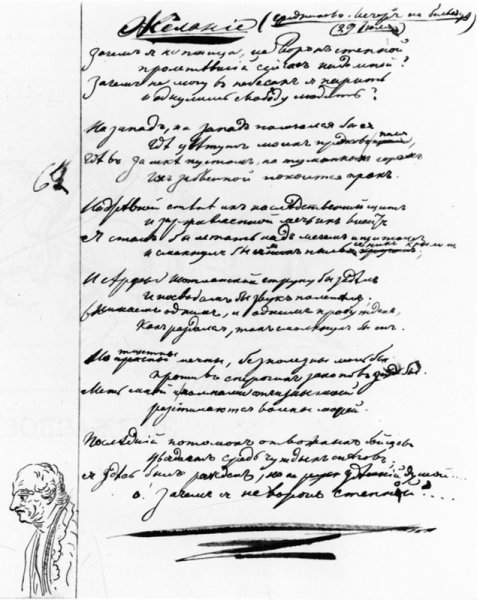 Желаніе (Средниково. Вечеръ на бельведерѣ)
(29 Іюля)
Зачемъ я не птица, не воронъ степной
пролетѣвшій сейчасъ надо мной?
Зачемъ не могу въ небесахъ я парить
и одну лишь свободу любить?
На западъ, на западъ помчался бы я
Гдѣ цвѣтутъ моихъ предковъ поля,
Гдѣ въ замкѣ пустомъ, на туманныхъ горахъ,
ихъ забвенной покоится прахъ.
На древней стѣнѣ ихъ наслѣдственный щитъ
и заржавленной мечь ихъ виситъ
Я сталъ бы летать надъ мечомъ и щитомъ
и смахнулъ бы я пыль съ нихъ крыломъ;
И Арфы шотландской струну бы задѣлъ
И по сводамъ бы звукъ полетѣлъ;
Внимаемъ однимъ, и однимъ пробужденъ,
Какъ раздался, такъ смолкнулъ бы онъ.
Но тщетны мечты, безполезны мольбы
противъ строгихъ законовъ судьбы.
Межь мной и холмами отчизны моей
разстилаются волны морей.
Послѣдній потомокъ отважныхъ бойцовъ
увядаетъ средь чуждыхъ снѣговъ;
Я здѣсь былъ рожденъ, но нездѣшній душой...
о! зачемъ я не воронъ степной?...